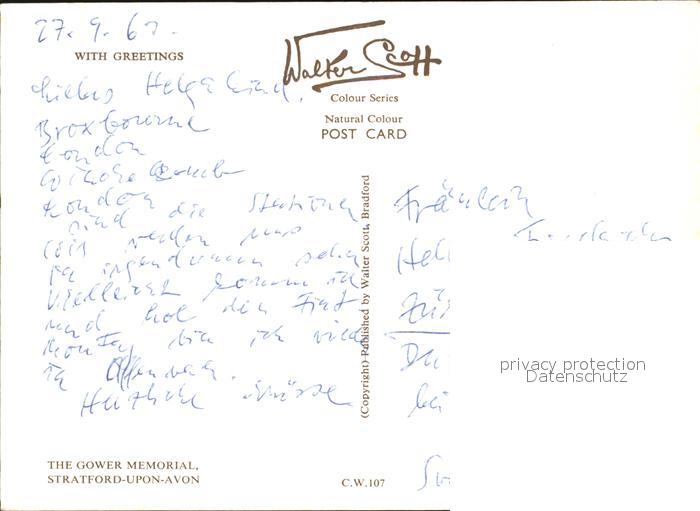 27. 9. 67.
WITH GREETINGS
Walter Scott
Colour Series
Natural Colour
POST CARD
Liebes Helgakind,
Broxbourne
London
London
sind die Stationen
wir werden uns
ja irgendwann sehn
Vielleicht komm ich
und hol den Fiat
Montag bin ich wieder
in Offenbach.
Herzliche Grüsse
(Copyright) Published by Walter Scott, Bradford
Fräulein
Hel
Zür
privacy protection
Datenschutz
bei
THE GOWER MEMORIAL,
STRATFORD-UPON-AVON
C.W.107